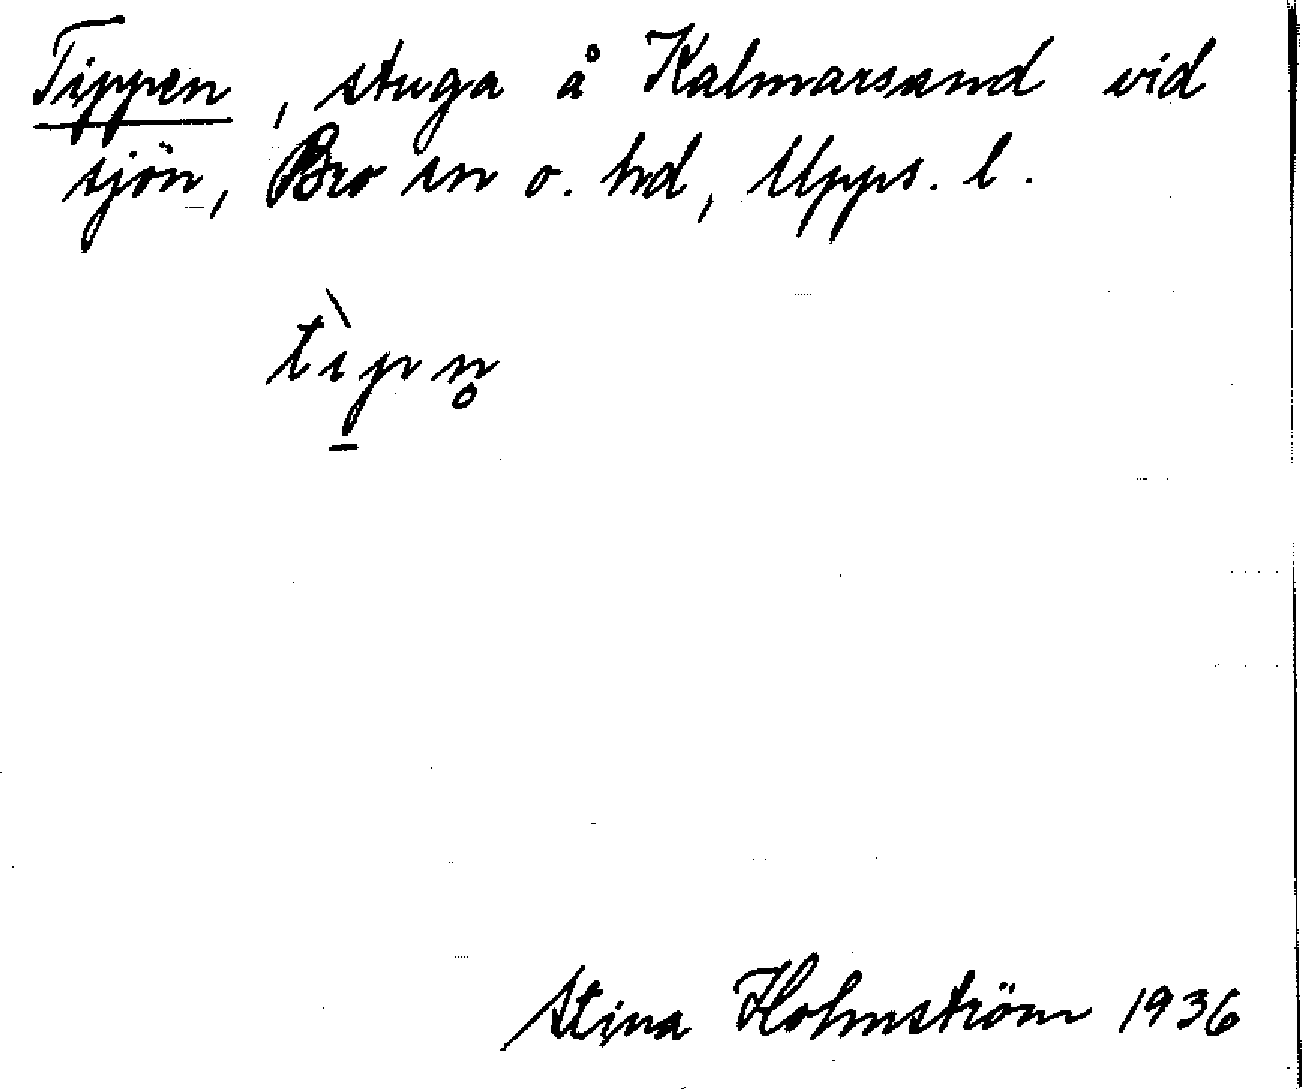 Tippen, stuga å Kalmarsand vid
sjön, Bro sn o. hd, Upps. l.
tìp̠n̥
Stina Holmström 1936